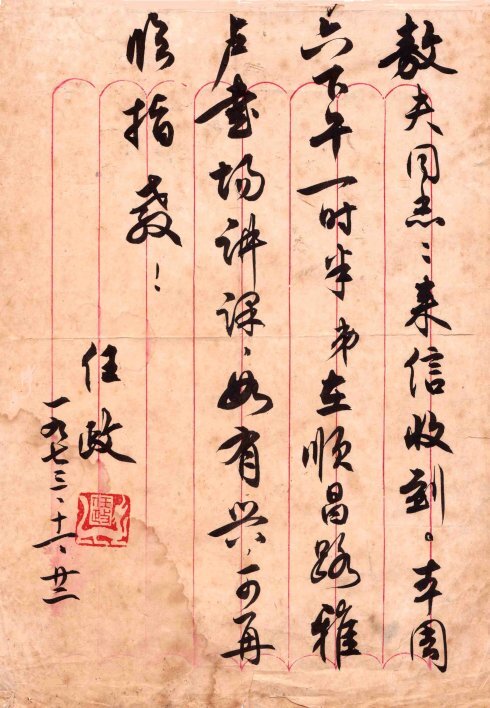 敖夫同志：来信收到。本周
六下午一时半弟在顺昌路雅
卢书场讲课，如有兴，可再
临指教！
任政
一九七三、十一、廿二